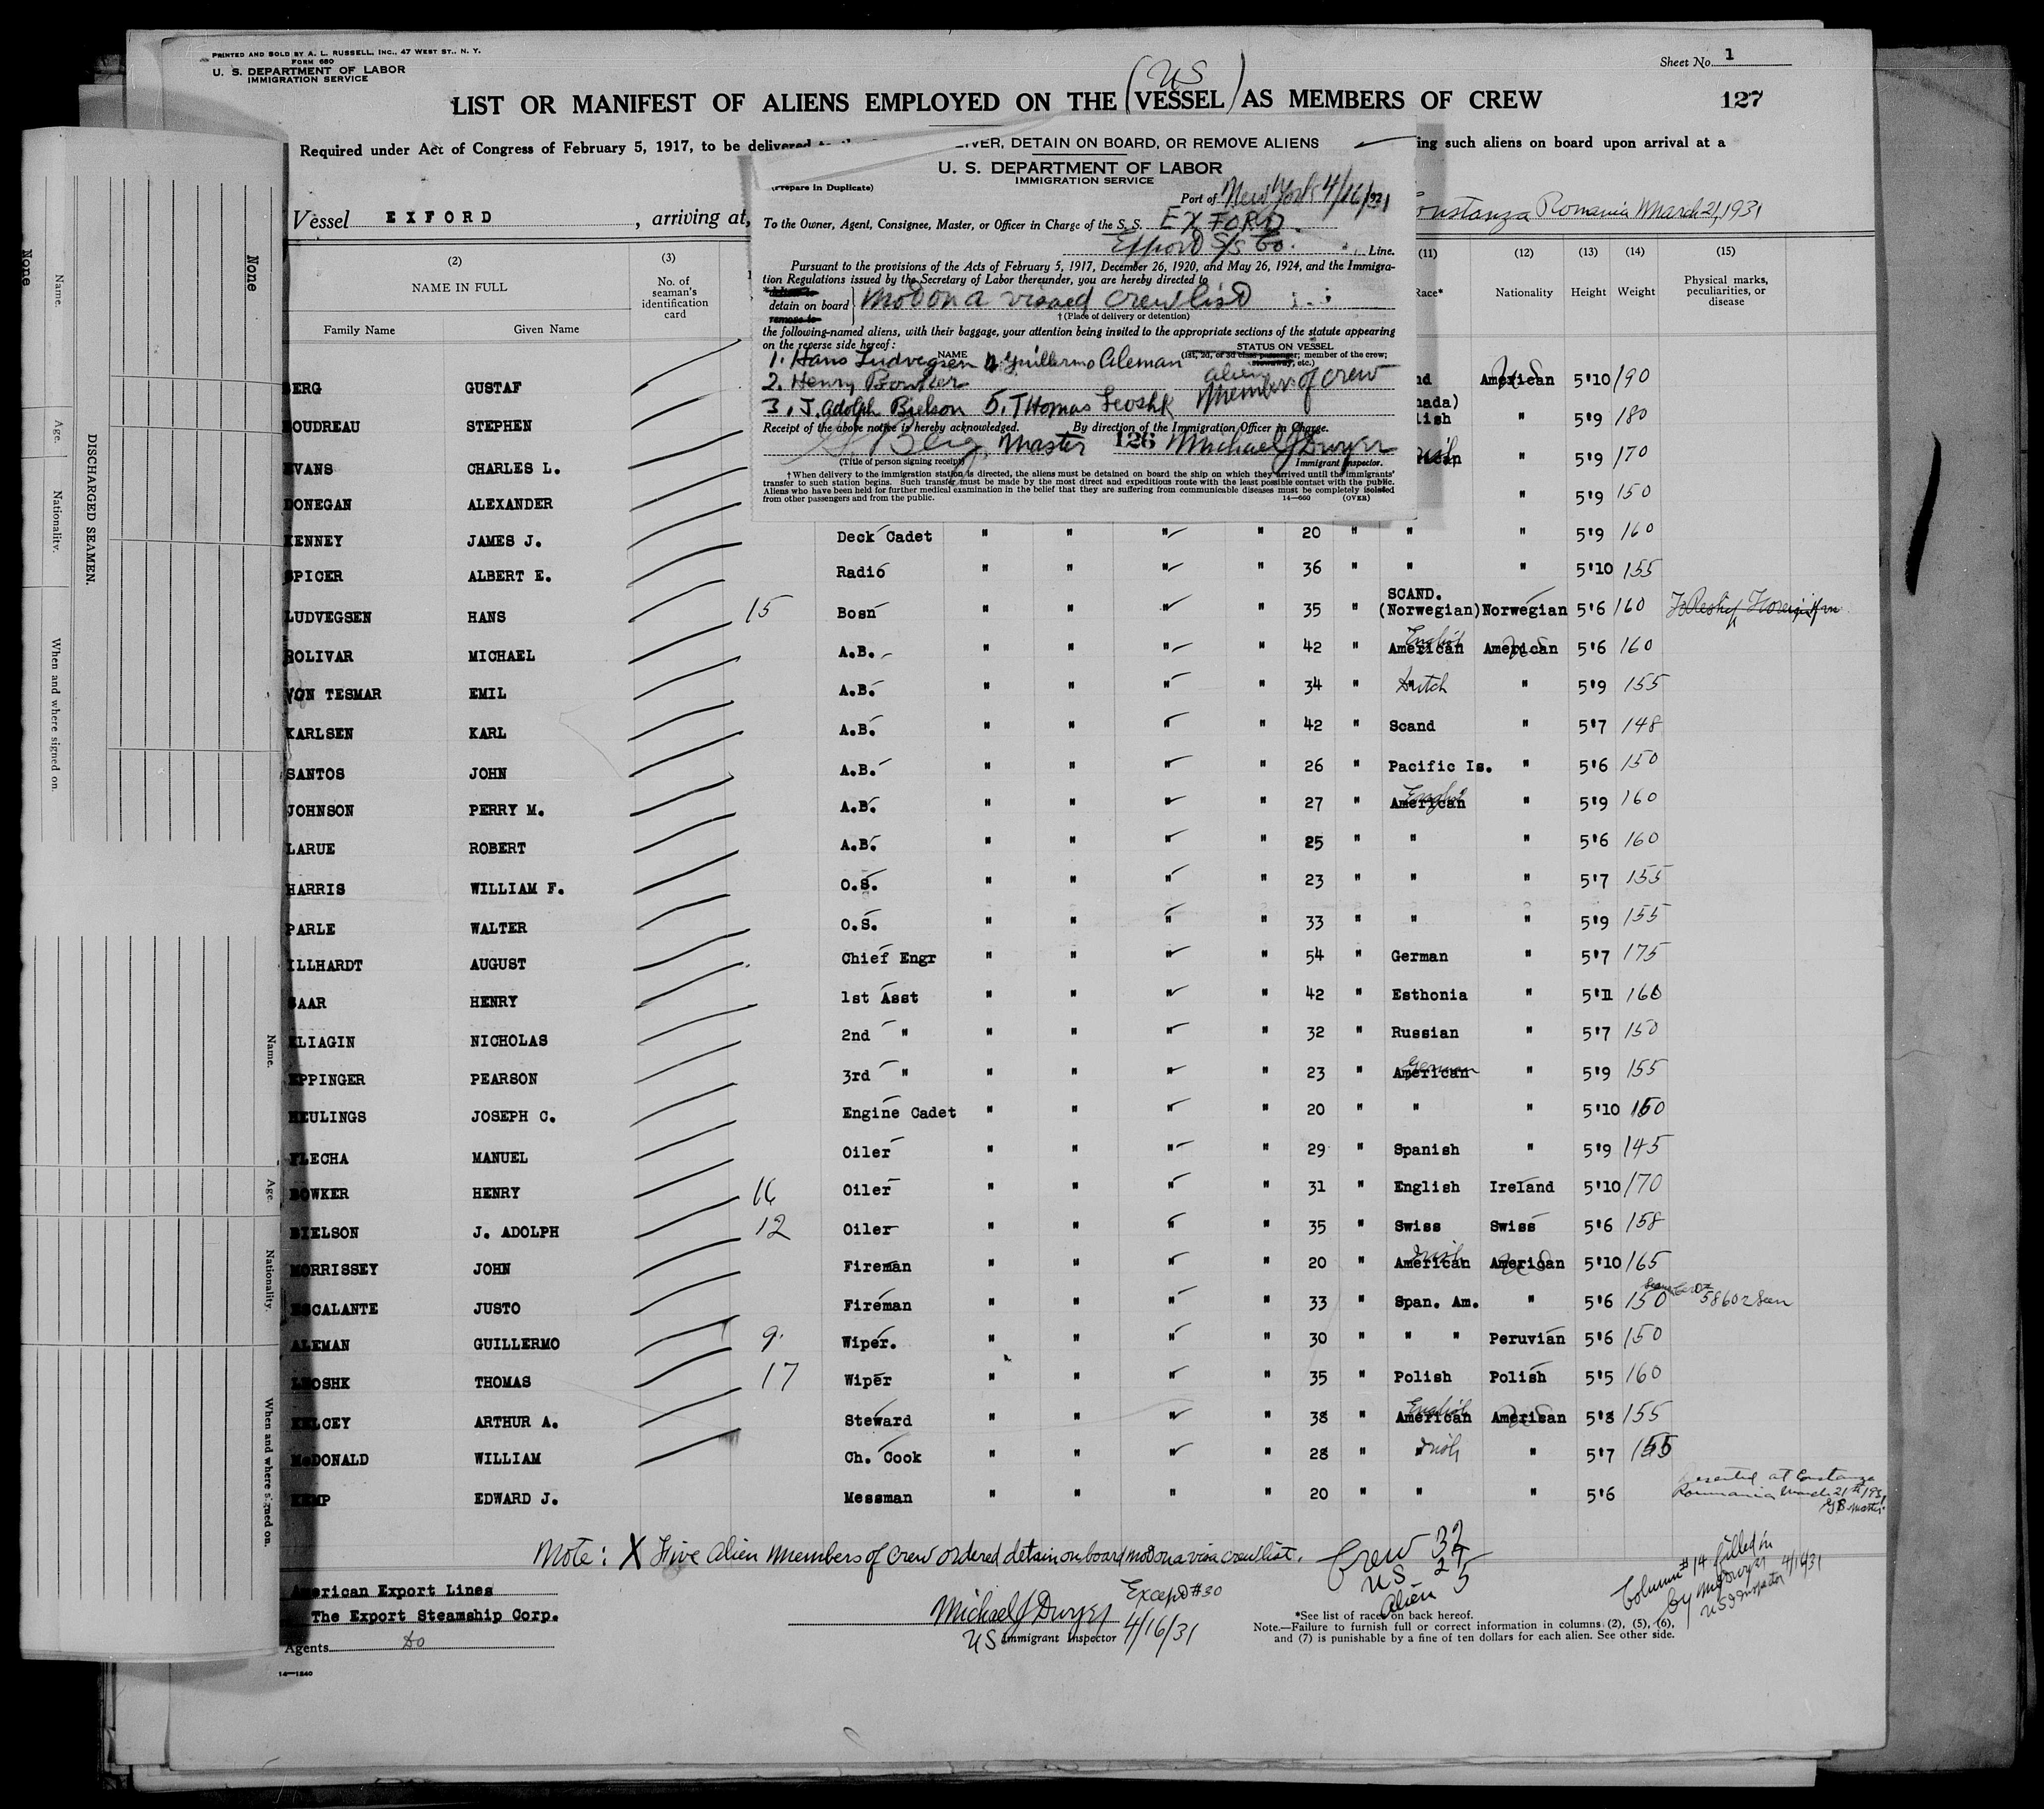 PRINTED AND SOLD BY A. L. RUSSELL, INC., 47 WEST ST., N. Y.
FORM 680
U. S. DEPARTMENT OF LABOR
IMMIGRATION SERVICE
Sheet No. 1
(US)
LIST OR MANIFEST OF ALIENS EMPLOYED ON THE (VESSEL) AS MEMBERS OF CREW
127
Required under Act of Congress of February 5, 1917, to be delivered
ing such aliens on board upon arrival at a
Vessel EXFORD, arriving at
Constanza Romania March 21, 1931
LIVER, DETAIN ON BOARD, OR REMOVE ALIENS
U. S. DEPARTMENT OF LABOR
IMMIGRATION SERVICE
(Prepare in Duplicate)
Port of New York 4/16/1931
To the Owner, Agent, Consignee, Master, or Officer in Charge of the S. S. EXFORD
Export S/s Co. Line.
Pursuant to the provisions of the Acts of February 5, 1917, December 26, 1920, and May 26, 1924, and the Immigra-
tion Regulations issued by the Secretary of Labor thereunder, you are hereby directed to
*deliver to
detain on board
remove to
Mod on a visaed crew list
†(Place of delivery or detention)
the following-named aliens, with their baggage, your attention being invited to the appropriate sections of the statute appearing
on the reverse side hereof:
NAME
STATUS ON VESSEL
(1st, 2d, or 3d class passenger; member of the crew; stowaway, etc.)
1. Hans Ludvegsen 4. Guillermo Aleman
2. Henry Bowker
alien
3. J. Adolph Bielson 5. Thomas Leoshk
Member of crew
Receipt of the above notice is hereby acknowledged. By direction of the Immigration Officer in Charge.
G. Berg, Master 126 Michael J Dwyer
(Title of person signing receipt)
Immigrant Inspector.
†When delivery to the immigration station is directed, the aliens must be detained on board the ship on which they arrived until the immigrants'
transfer to such station begins. Such transfer must be made by the most direct and expeditious route with the least possible contact with the public.
Aliens who have been held for further medical examination in the belief that they are suffering from communicable diseases must be completely isolated
from other passengers and from the public.
14—660 (OVER)
(2) (3) (11) (12) (13) (14) (15)
NAME IN FULL
No. of seaman's identification card
Race* Nationality Height Weight Physical marks, peculiarities, or disease
Family Name Given Name
BERG GUSTAF nd American US 5'10 190
nada)
BOUDREAU STEPHEN lish " 5'9 180
EVANS CHARLES L. rican " 5'9 170
DONEGAN ALEXANDER " 5'9 150
KENNEY JAMES J. Deck Cadet " " " " 20 " " " 5'9 160
SPICER ALBERT E. Radio " " " " 36 " " " 5'10 155
LUDVEGSEN HANS 15 Bosn " " " " 35 " SCAND. (Norwegian) Norwegian 5'6 160
ROLIVAR MICHAEL A.B. " " " " 42 " American English American US 5'6 160
VON TESMAR EMIL A.B. " " " " 34 " Dutch " 5'9 155
KARLSEN KARL A.B. " " " " 42 " Scand " 5'7 148
SANTOS JOHN A.B. " " " " 26 " Pacific Is. " 5'6 150
JOHNSON PERRY M. A.B. " " " " 27 " American English " 5'9 160
LARUE ROBERT A.B. " " " " 25 " " " 5'6 160
HARRIS WILLIAM F. O.S. " " " " 23 " " " 5'7 155
PARLE WALTER O.S. " " " " 33 " " " 5'9 155
ILLHARDT AUGUST Chief Engr " " " " 54 " German " 5'7 175
SAAR HENRY 1st Asst " " " " 42 " Esthonia " 5'11 160
ELIAGIN NICHOLAS 2nd " " " " " 32 " Russian " 5'7 150
EPPINGER PEARSON 3rd " " " " " 23 " American German " 5'9 155
HEULINGS JOSEPH C. Engine Cadet " " " " 20 " " " 5'10 150
FLECHA MANUEL Oiler " " " " 29 " Spanish " 5'9 145
BOWKER HENRY 16 Oiler " " " " 31 " English Ireland 5'10 170
BIELSON J. ADOLPH 12 Oiler " " " " 35 " Swiss Swiss 5'6 158
MORRISSEY JOHN Fireman " " " " 20 " American Irish American US 5'10 165
ESCALANTE JUSTO Fireman " " " " 33 " Span. Am. " 5'6 150 58602 Seen
ALEMAN GUILLERMO 9. Wiper. " " " " 30 " " " Peruvian 5'6 150
LEOSHK THOMAS 17 Wiper " " " " 35 " Polish Polish 5'5 160
KELCEY ARTHUR A. Steward " " " " 38 " American English American US 5'8 155
McDONALD WILLIAM Ch. Cook " " " " 28 " Irish " 5'7 155
KEMP EDWARD J. Messman " " " " 20 " " " 5'6 Deserted at Constanza
Roumania March 21th 1931
GB Master
Note: X Five alien members of crew ordered detain on board mod on a visa crew list.
Crew 32
US 27
Alien 5
Column #14 filled in
by M J Dwyer
US Inspector 4/16/31
American Export Lines
The Export Steamship Corp.
Agents Do
Except #30
Michael J Dwyer
US Immigrant Inspector 4/16/31
*See list of races on back hereof.
Note.—Failure to furnish full or correct information in columns (2), (5), (6),
and (7) is punishable by a fine of ten dollars for each alien. See other side.
14—1240
None
None
Name.
Age.
Nationality.
When and where signed on.
DISCHARGED SEAMEN.
Name.
Age.
Nationality.
When and where signed on.